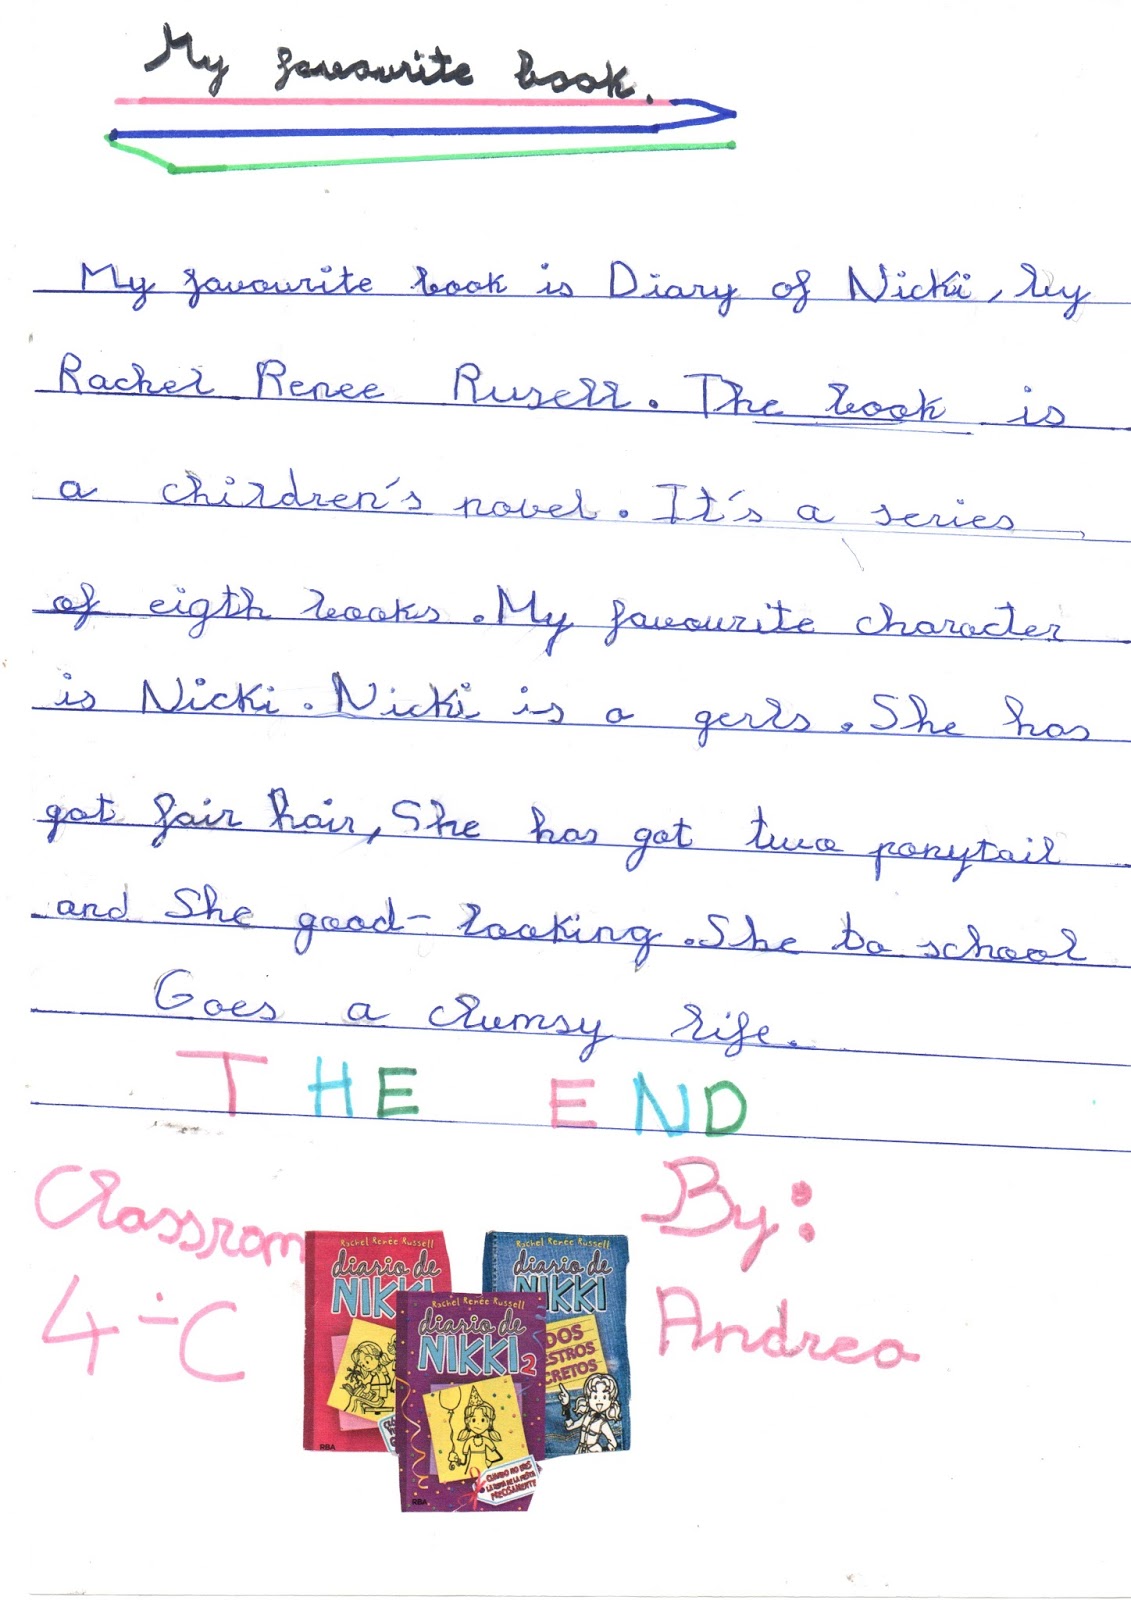 My favourite book.
My favourite book is Diary of Nicki, by
Rachel Renee Rusell. The book is
a children's novel. It's a series
of eigth books. My favourite character
is Nicki. Nicki is a gerls. She has
got fair hair, She has got two ponytail
and She good-looking. She to school
Goes a clumsy life.
THE END
Classrom
4-C
By:
Andrea
Rachel Renée Russell
diario de
NIKKI
RBA
Rachel Renée Russell
diario de
NIKKI 2
CUANDO NO ERES
LA REINA DE LA FIESTA
PRECISAMENTE
RBA
Rachel Renée Russell
diario de
NIKKI